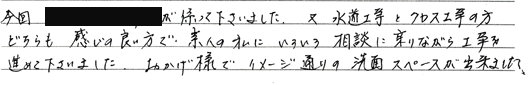 今回 が係って下さいました。又 水道工事とクロス工事の方
どちらも 感じの良い方で、素人の私にいろいろ 相談に乗りながら工事を
進めて下さいました。おかげ様で イメージ通りの 洗面スペースが出来ました。